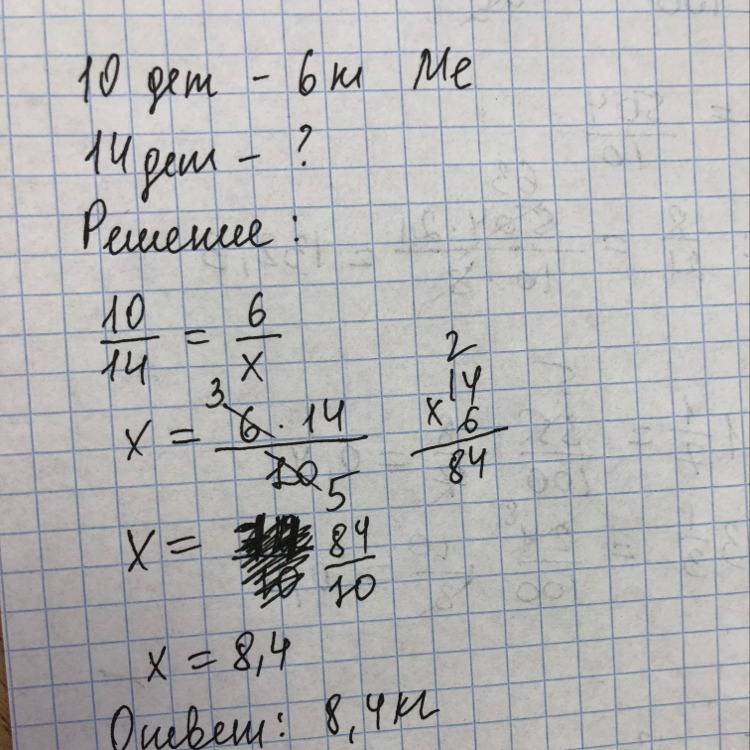 10 дет - 6 кг Ме
14 дет - ?
Решение:
10/14 = 6/x
x = 6 · 14/10
3
5
2
14
x 6
84
x = 84/10
x = 8,4
Ответ: 8,4 кг